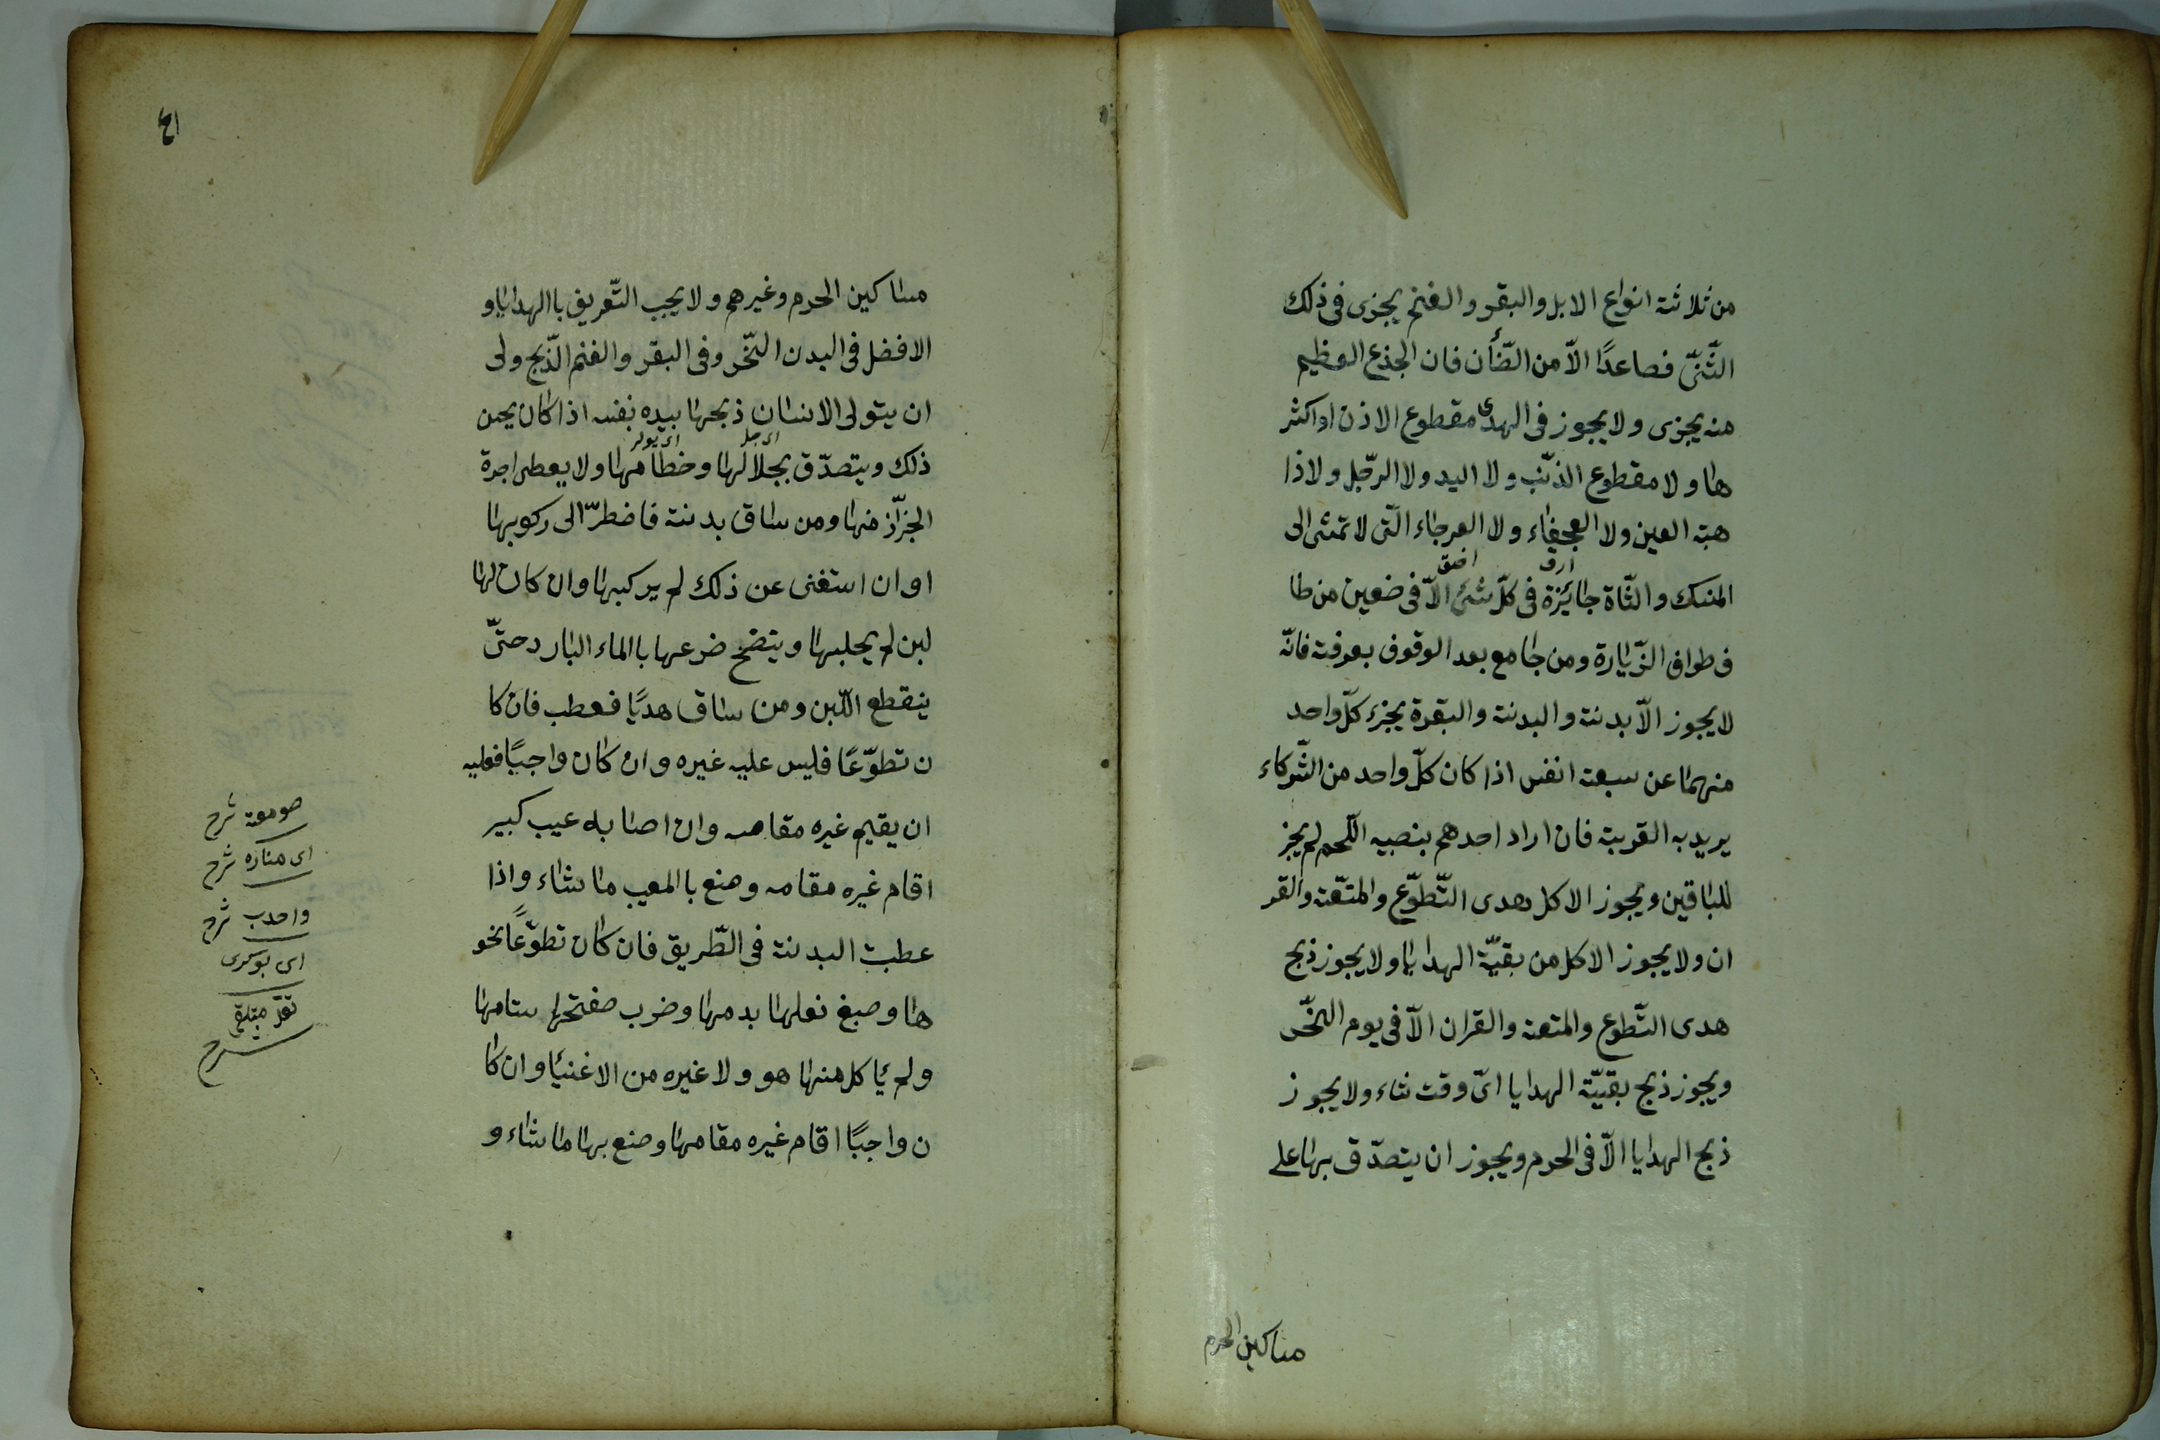 من ثلاثة انواع الابل والبقر والغنم يجزى فى ذلك
الثّنىّ فصاعدًا الاّ من الضّأن فان الجذع العظيم
منه يجزى ولا يجوز فى الهدى مقطوع الاذن او اكثر
ها ولا مقطوع الذّنب ولا اليد ولا الرّجل ولا ذا
هبة العين ولا العجفاء ولا العرجاء الّتى لا تمشى الى
المنسك والشّاة جايئزة فى كلّ شئ الاّ فى ضعين من طا
ف طواف الزّيارة ومن جامع بعد الوقوف بعرفة فانّه
لا يجوز الاّ بدنة والبدنة والبقرة يجزء كلّ واحد
منهما عن سبعة انفس اذا كان كلّ واحد من الشّركاء
يريد به القربة فان اراد احدهم بنصيبه اللّحم لم يجز
للباقين ويجوز الاكل هدى التّطوّع والمتعّة والقر
ان ولا يجوز الاكل من بقيّة الهدايا ولا يجوز ذبح
هدى التّطوع والمتعة والقران الاّ فى يوم النّحر
ويجوز ذبح بقيّة الهدايا اىّ وقت شاء ولا يجوز
ذبح الهدايا الاّ فى الحرم ويجوز ان يتصدّق بها على
مساكين الحرم
٤١
مساكين الحرم وغيرهم ولا يجب التّعريف باالهدايا و
الافضل فى البدن النّحر وفى البقر والغنم الذّبح ولى
ان يتولى الانسان ذبحها بيده نفسه اذا كان يحسن
ذلك ويتصدّق بجلالها وخطامها ولا يعطى اجرة
الجزّاز منها ومن ساق بدنة فاضطرّ الى ركوبها
او ان استغنى عن ذلك لم يركبها وان كان لها
لبن لم يحلبها وينضح ضرعها باالماء البارد حتّى
ينقطع اللّبن ومن ساق هديًا فعطب فان كا
ن تطوّعًا فليس عليه غيره وان كان واجبًا فعليه
ان يقيم غيره مقامه وان اصابه عيب كبير
اقام غيره مقامه وصنع باالمعيب ما شاء واذا
عطبت البدنة فى الطّريق فان كان تطوّعًا نحر
ها وصبغ نعلها بدمها وضرب صفحتها سنامها
ولم ياكل منها هو ولا غيره من الاغنيا وان كا
ن واجبًا اقام غيره مقامها وصنع بها ما شاء و
صومعة شرح
اى مناره شرح
واحدب شرح
شرح